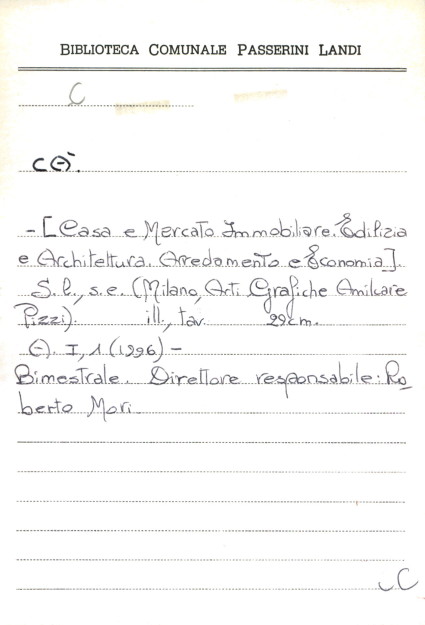 BIBLIOTECA COMUNALE PASSERINI LANDI
C
CÀ.
- [Casa e Mercato Immobiliare. Edilizia
e Architettura. Arredamento e Economia].
S. l., s. e. (Milano, Arti Grafiche Amilcare
Pizzi). ill., tav. 29cm.
A. I, 1 (1996) -
Bimestrale. Direttore responsabile: Ro
berto Mori
C